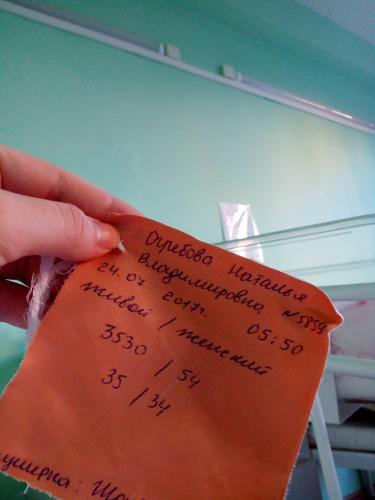 Огребова Наталья
Владимировна №5859
24.07 2017г. 05:50
живой / женский
3530 / 54
35 / 34